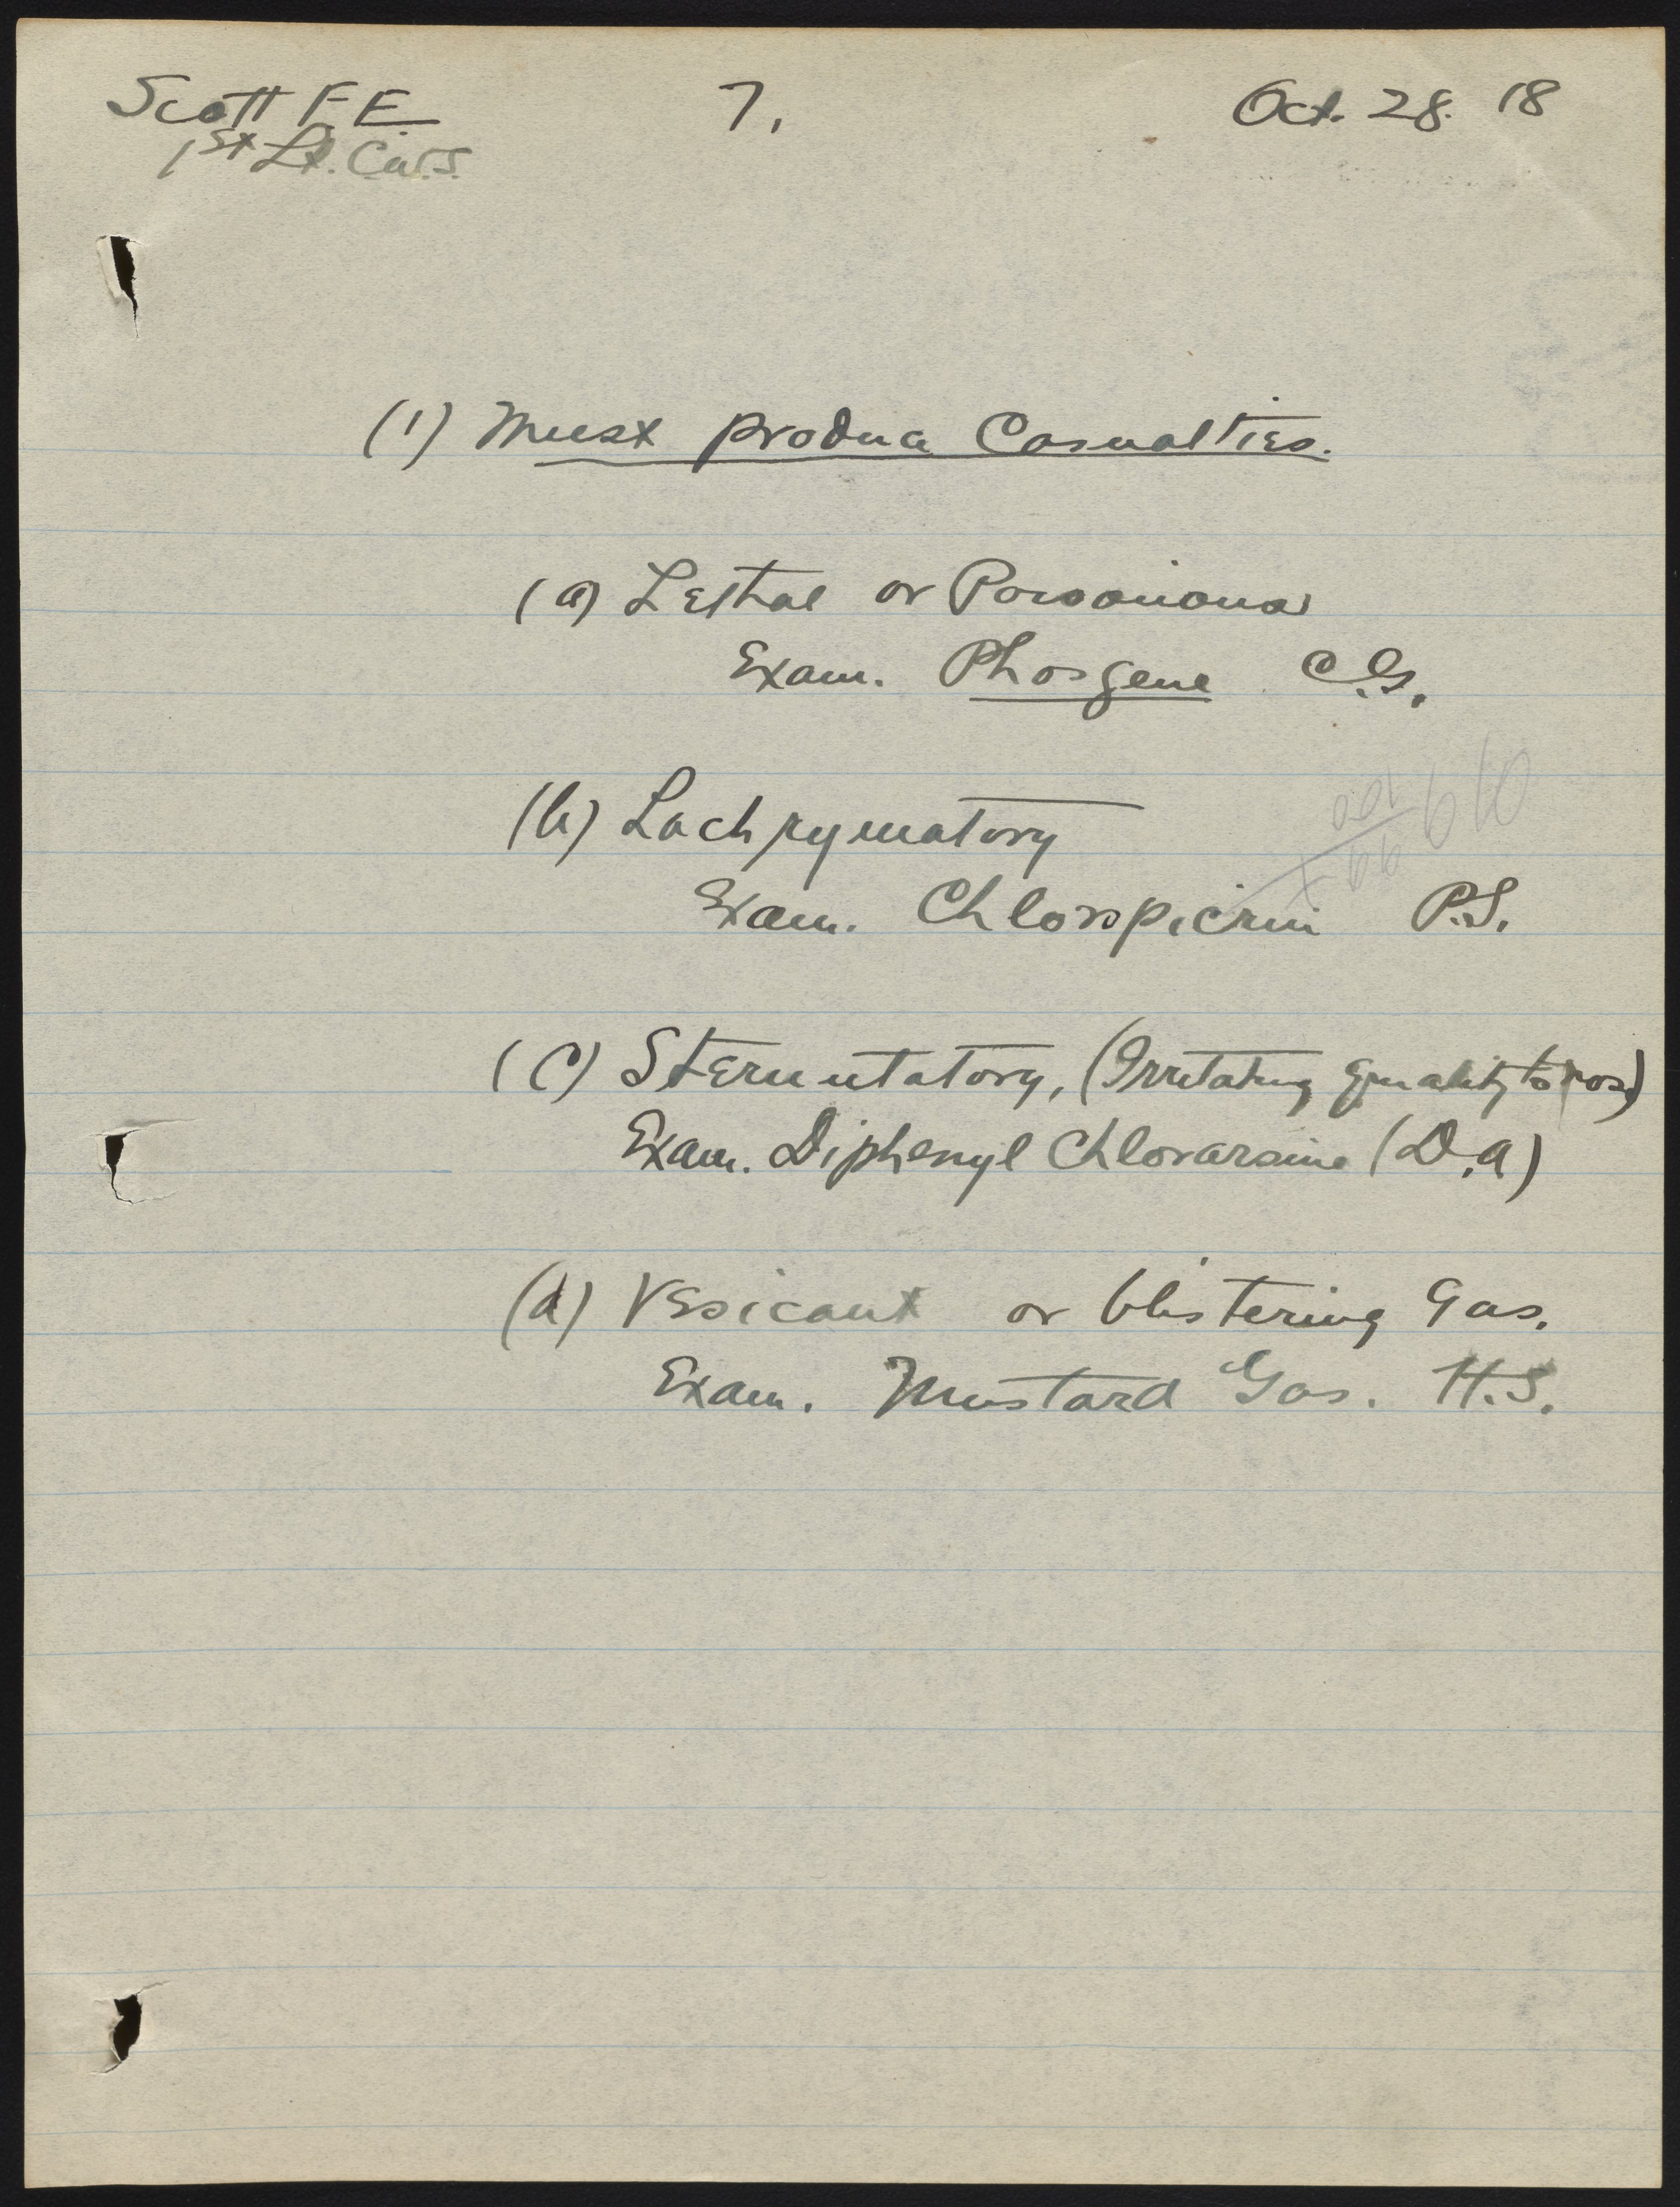 Scott F.E. 7. Oct. 28. 18
1st Lt. C.W.S.
(1) Must produce Casualties.
(a) Lethal or Poisonious
Exam. Phosgene C.G.
(b) Lachrymatory
Exam. Chlorpicrin P.S.
(c) Sternutatory, (Irritating quality to nose)
Exam. Diphenyl Chlorarsine (D.A)
(d) Vesicant or blistering Gas.
Exam. Mustard Gas. H.S.